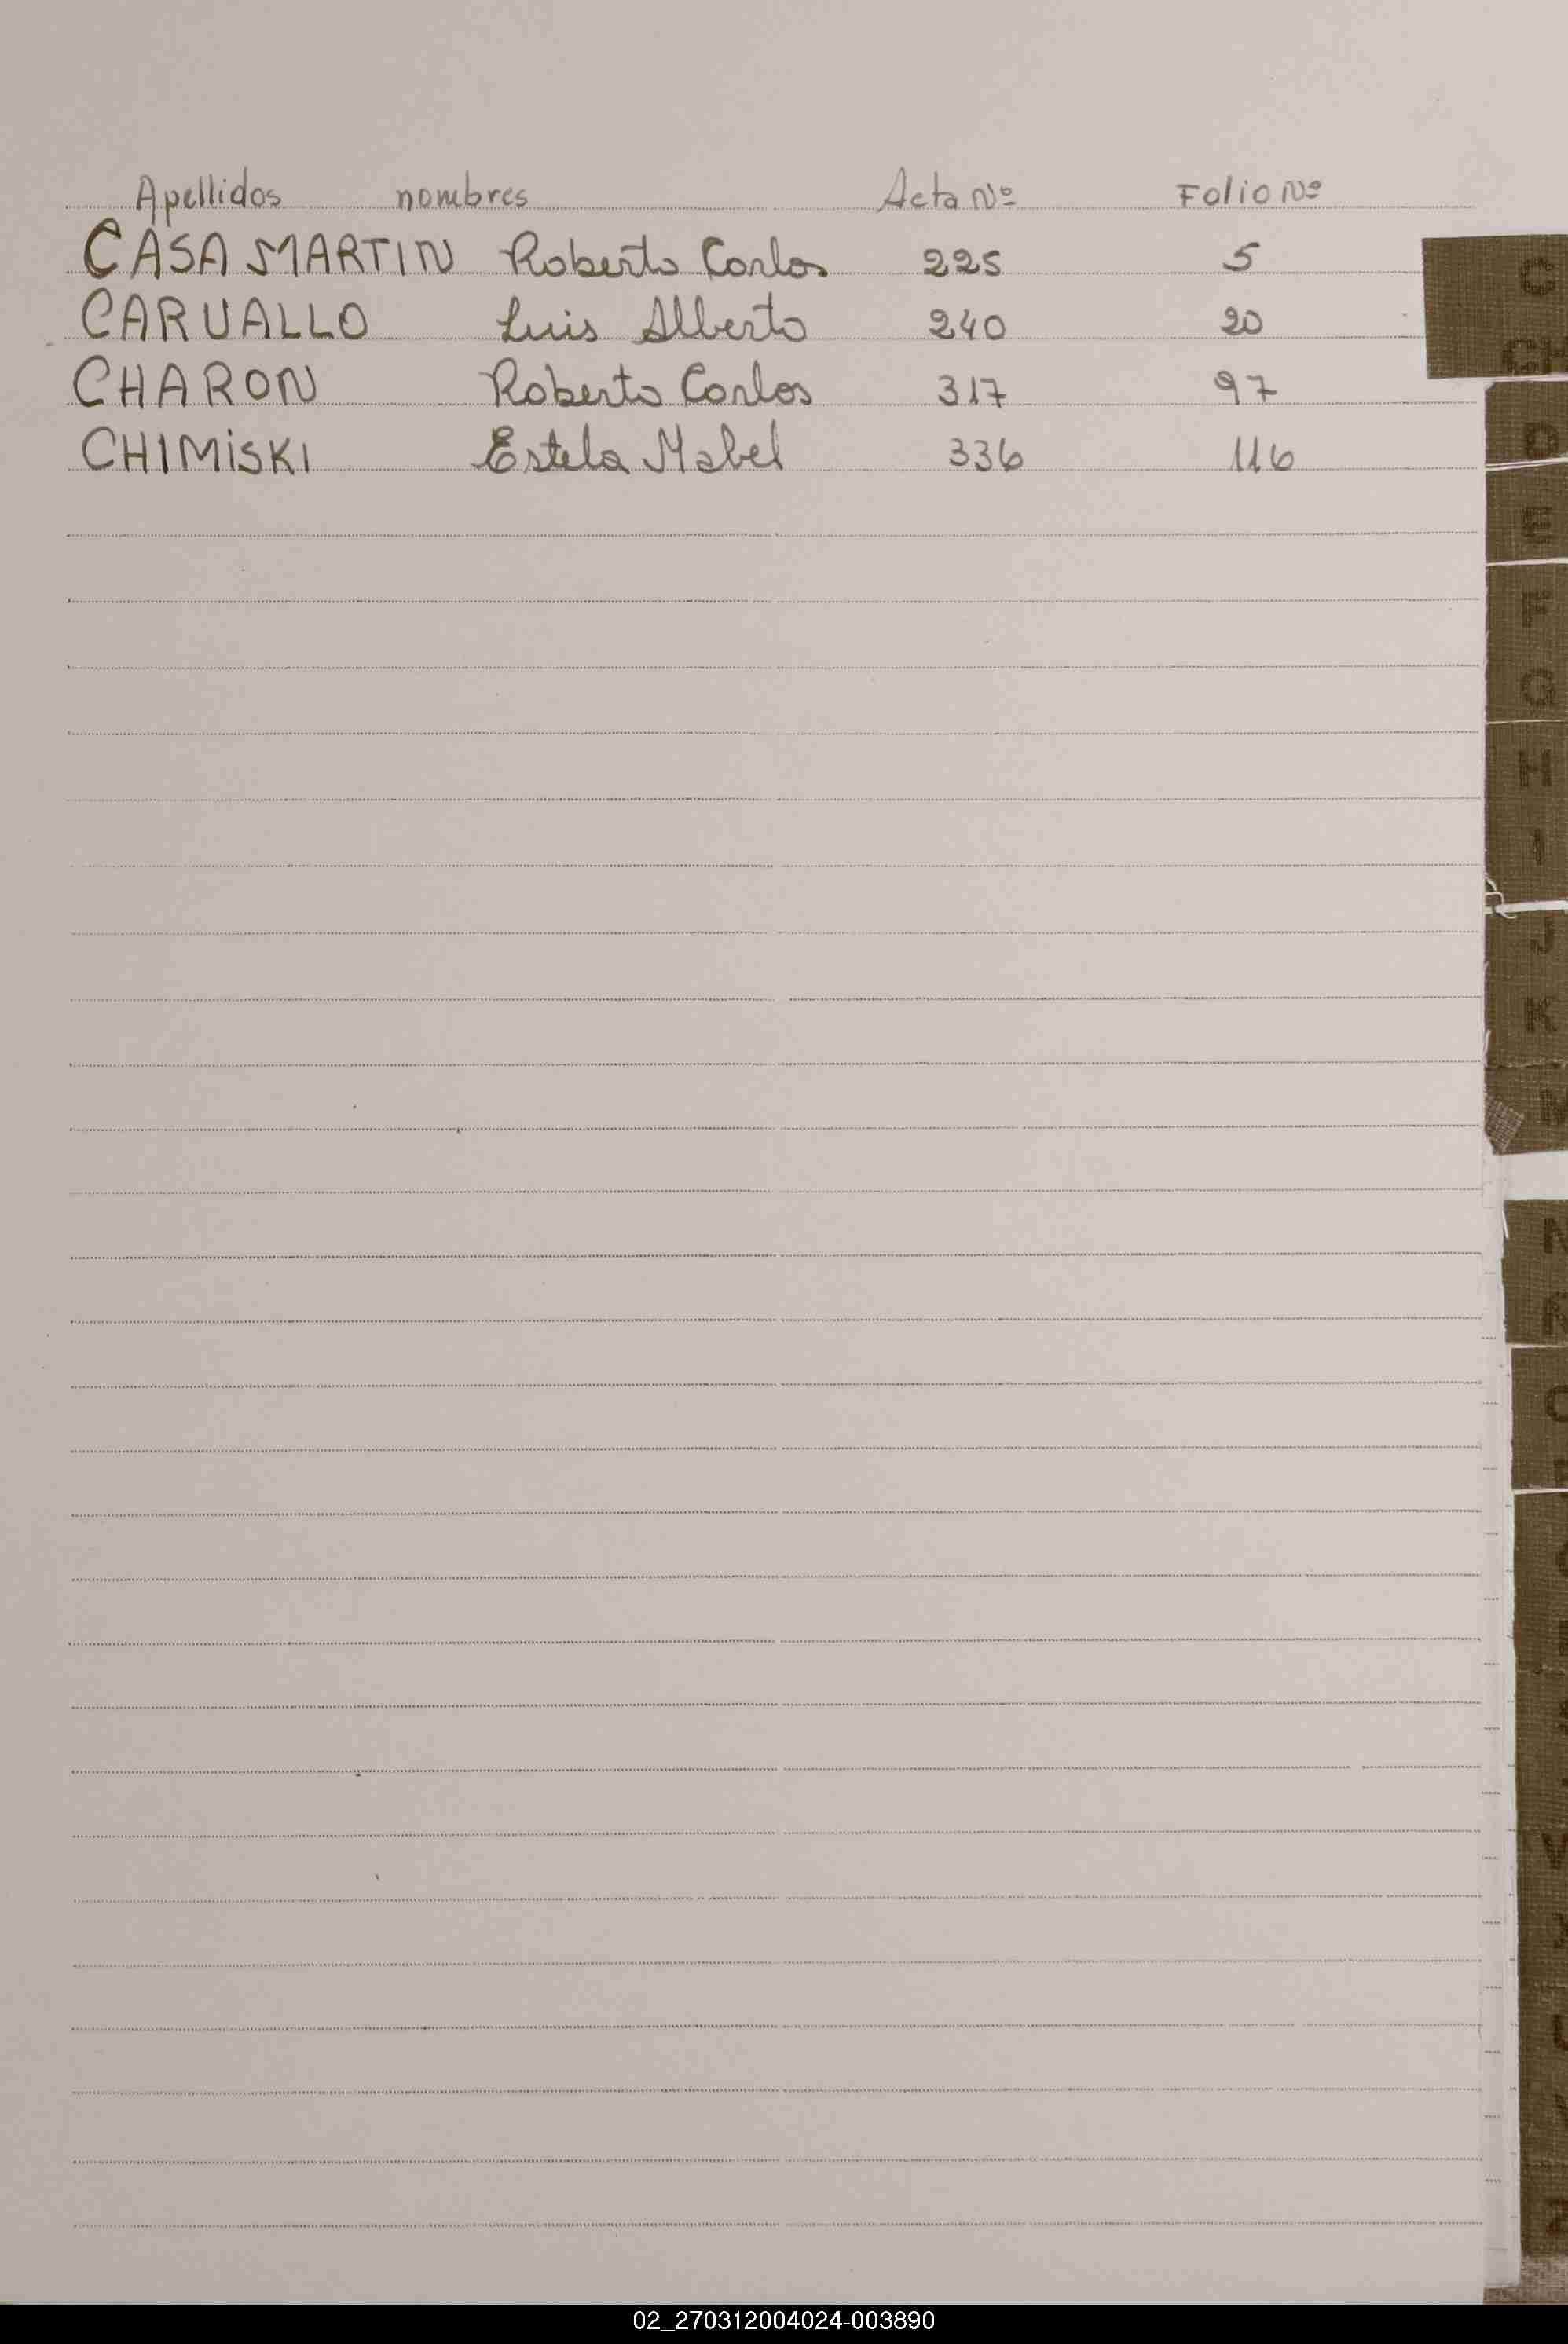 Apellidos nombres Acta Nº Folio Nº
CASA MARTIN Roberto Carlos 225 5
CARUALLO Luis Alberto 240 20
CHARON Roberto Carlos 317 97
CHIMiSKI Estela Mabel 336 116
C
CH
D
E
F
G
H
I
J
K
N
V
02_270312004024-003890